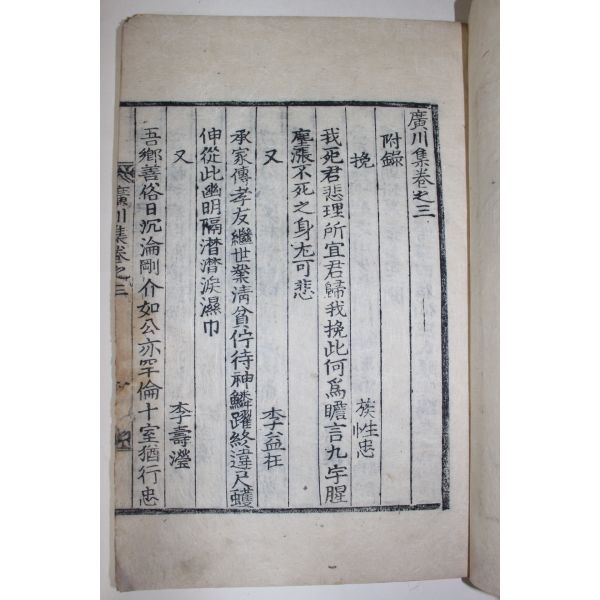 廣川集卷之三
附錄
挽 族性忠
我死君悲理所宜君歸我挽此何爲瞻言九宇腥
塵漲不死之身尤可悲
又 李益在
承家傳孝友繼世業淸貧佇待神鱗躍終違尺蠖
伸從此幽明隔潸潸淚濕巾
又 李壽瀅
吾鄉善俗日沉淪剛介如公亦罕倫十室猶行忠
廣川集卷之三